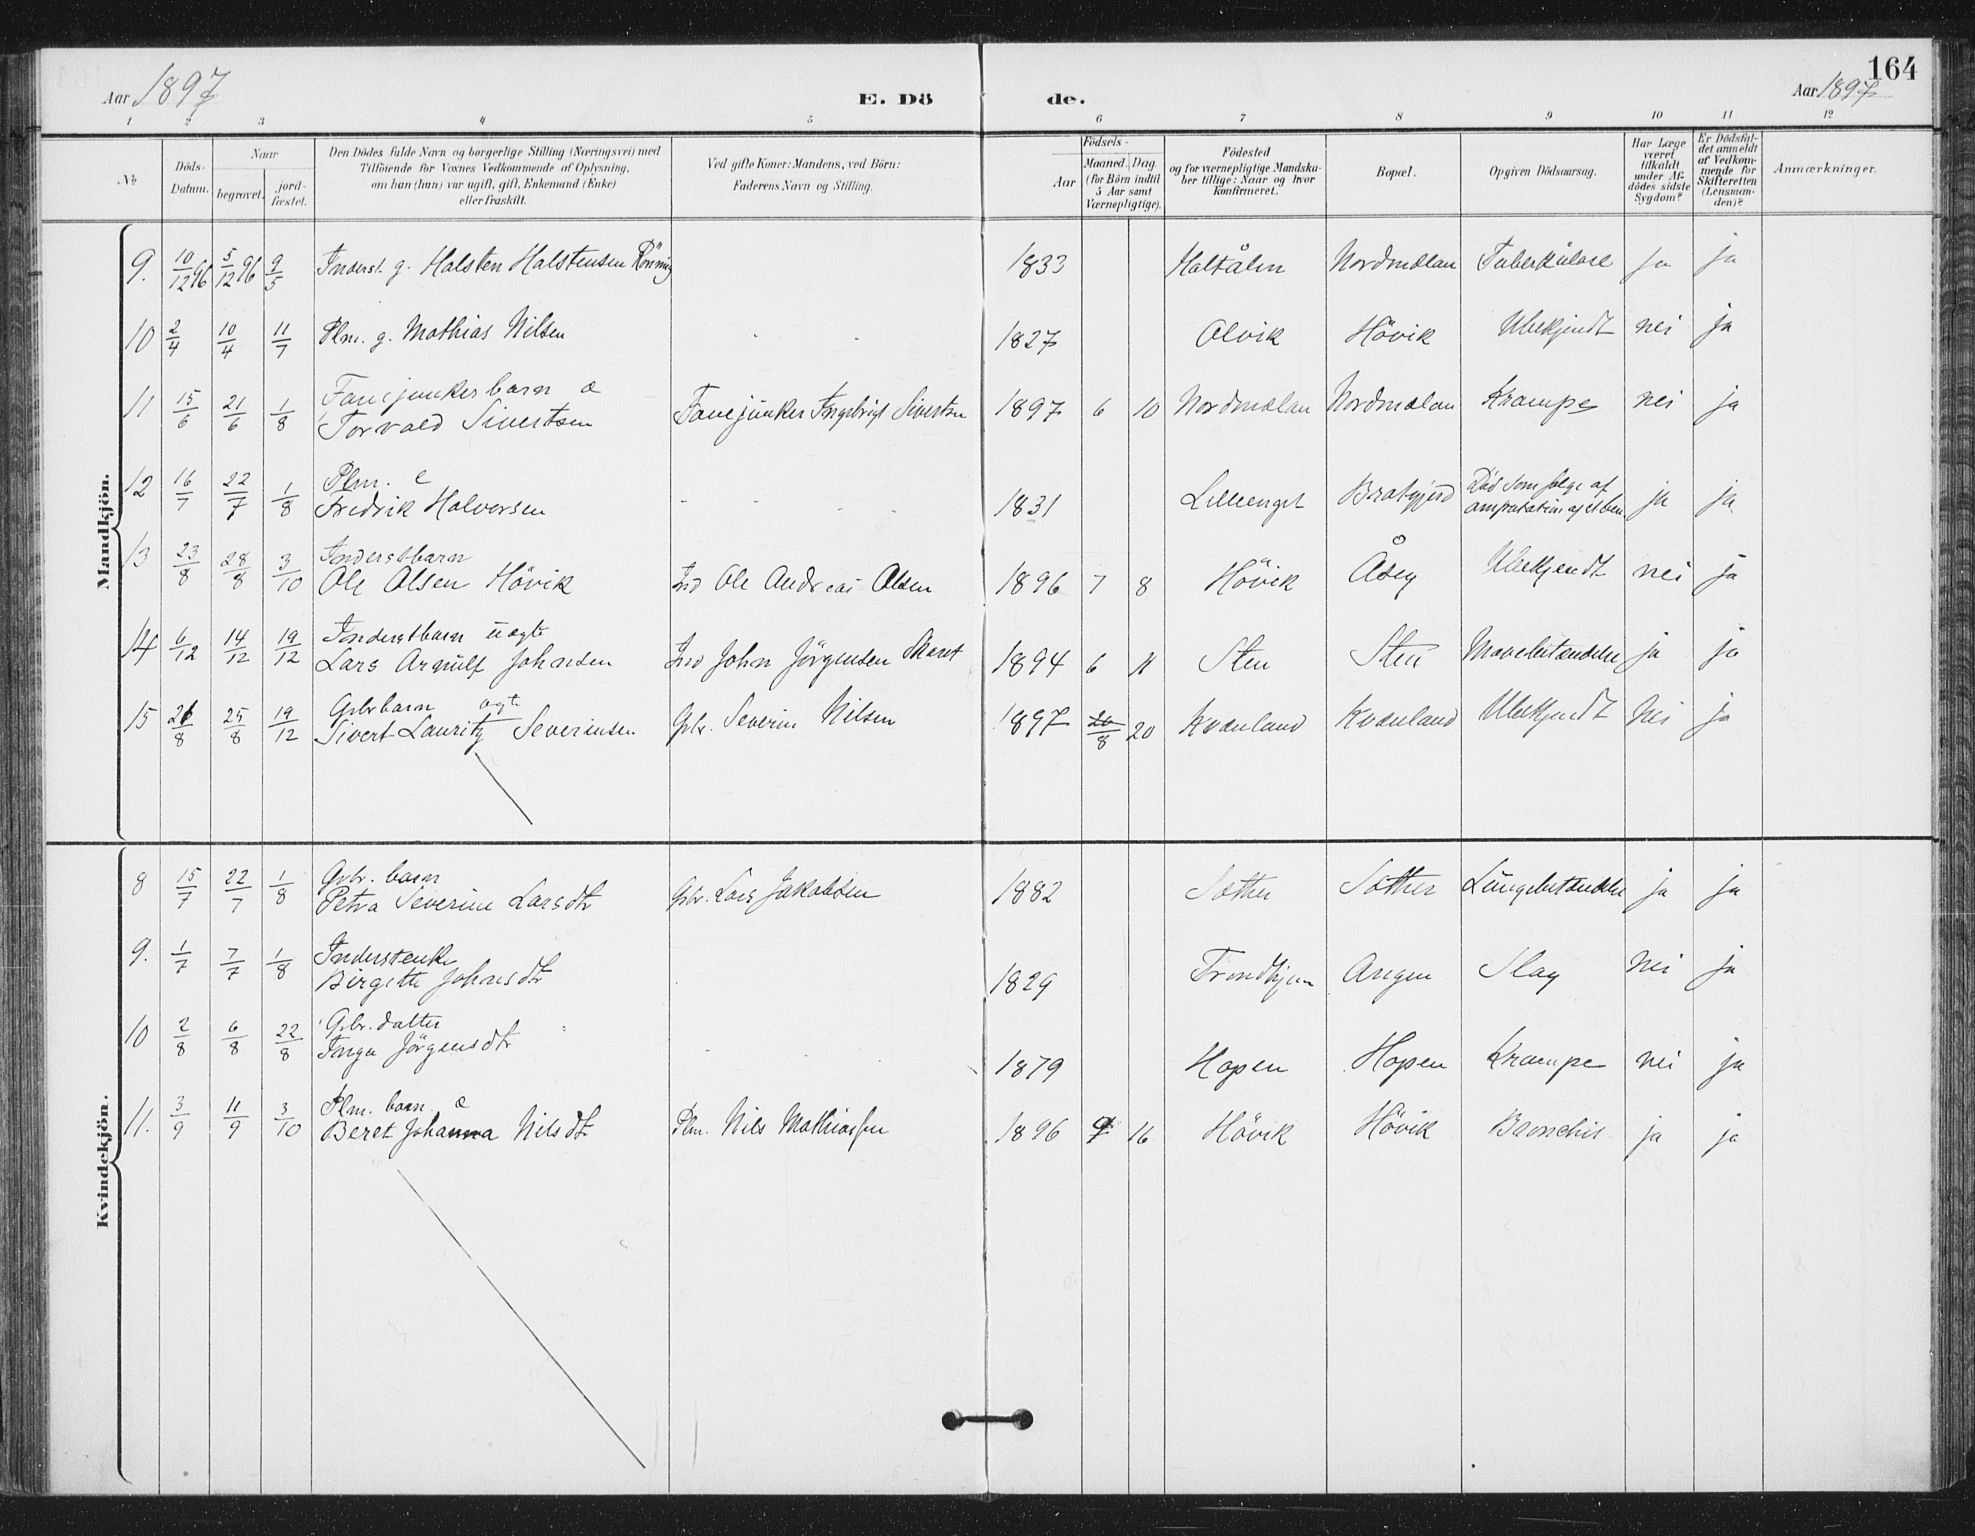 Aar 1897
E. Dö
de.
164
Aar 1897
1 2 3 4 5 6 7 8 9 10 11 12
No
Döds-Datum.
Naar
begravet.
jord-fæstet.
Den Dödes fulde Navn og borgerlige Stilling (Næringsvei) med
Tilföiende for Voxnes Vedkommende af Oplysning,
om han (hun) var ugift, gift, Enkemand (Enke)
eller fraskilt.
Ved gifte Koner: Mandens, ved Börn:
Faderens Navn og Stilling.
Födsels-
Aar
Maaned. Dag.
(for Börn indtil
5 Aar samt
Værnepligtige).
Födested
og for værnepligtige Mandska-
ber tillige: Naar og hvor
Konfirmeret.
Bopæl.
Opgiven Dödsaarsag.
Har Læge
været
tilkaldt
under Af-
dödes sidste
Sygdom?
Er Dödsfal-
det anmeldt
af Vedkom-
mende for
Skifteretten
(Lensman-
den)?
Anmærkninger.
Mandkjön.
9. 10/12 96 5/12 96 9/5 Inderst. g. Halsten Halstensen Rönning 1833 Holtålen Nordmælan Tuberkulose ja ja
10 2/4 10/4 11/7 Plm. g. Mathias Nilsen 1827 Olvik Hövik Ubekjendt nei ja
11 15/6 21/6 1/8 Fanejunkerbarn æ
Torvald Sivertsen Fanejunker Ingebrigt Sivertsen 1897 6 10 Nordmælan Nordmælan Krampe nei ja
12 16/7 22/7 1/8 Plm. e
Fredrik Halvorsen 1831 Lilleenget Bratgjerd Död som følge af
amputation af et ben ja ja
13 23/8 28/8 3/10 Inderstbarn
Ole Olsen Hövik Ind Ole Andreas Olsen 1896 7 8 Hövik Åsen Ubekjendt nei ja
14 6/12 14/12 19/12 Inderstbarn uægte
Lars Arnulf Johnsen Ind John Jörgensen Skaret 1894 6 11 Sten Sten Mavebetændelse ja ja
15 21/8 25/8 19/12 Gbrbarn ægte
Sivert Lauritz Severinsen Gbr. Severin Nilsen 1897 20/8 20 Kvænland Kvænland Ubekjendt Nei ja
Kvindekjön.
8 15/7 22/7 1/8 Gbr. barn
Petra Severine Larsdtr Gbr. Lars Jakobsen 1882 Sæther Sæther Lungebetændelse ja ja
9. 1/7 7/7 1/8 Inderstenke
Birgitte Johnsdtr 1829 Trondhjem Angen Slag Nei ja
10 2/8 6/8 22/8 Gbr. datter
Inga Jörgensdtr 1879 Hopen Hopen Krampe nei ja
11. 3/9 11/9 3/10 Plm. barn æ
Beret Johanna Nilsdtr Plm. Nils Mathiassen 1896 9 16 Hövik Hövik Bronchit ja ja